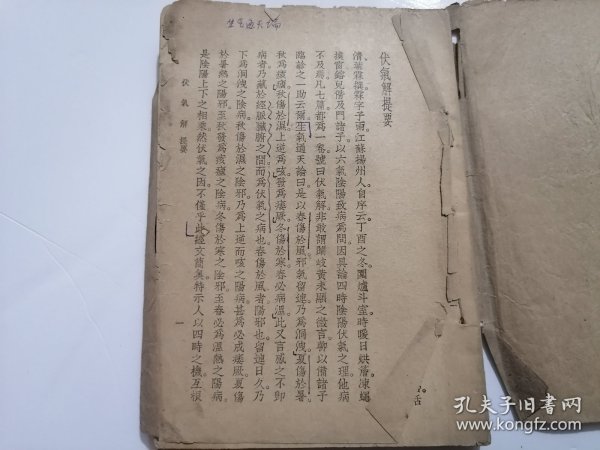 伏氣解提要
清葉霖撰霖字子雨江蘇揚州人自序云丁酉之冬圍爐斗室時暖日烘簷凍蠅
撲窗鎔兒偕及門諸子以六氣陰陽致病爲問因具論四時陰陽伏氣之理他病
不及焉凡七篇都爲一卷號曰伏氣解非敢謂闡岐黃未顯之微言聊以備諸子
臨診之一助云爾生氣通天論曰是以春傷於風邪氣留連乃爲洞洩夏傷於暑
秋爲痎瘧秋傷於濕上逆爲咳發爲痿厥冬傷於寒春必病溫此又言感之不卽
病者乃藏於經脈臟腑之間而爲伏氣之病也春傷於風者陽邪也留連日久乃
下爲洞洩之陰病秋傷於濕之陰邪乃爲上逆而咳之陽病甚爲必成痿厥夏傷
於暑熱之陽邪至秋發爲痎瘧之陰病冬傷於寒之陰邪至春必爲溫熱之陽病
是陰陽上下之相乘然伏氣之因不僅乎此經文簡奧特示人以四時之機互根
伏氣解 提要
一
生氣通天論
孔夫子旧书网
www.kongfz.com